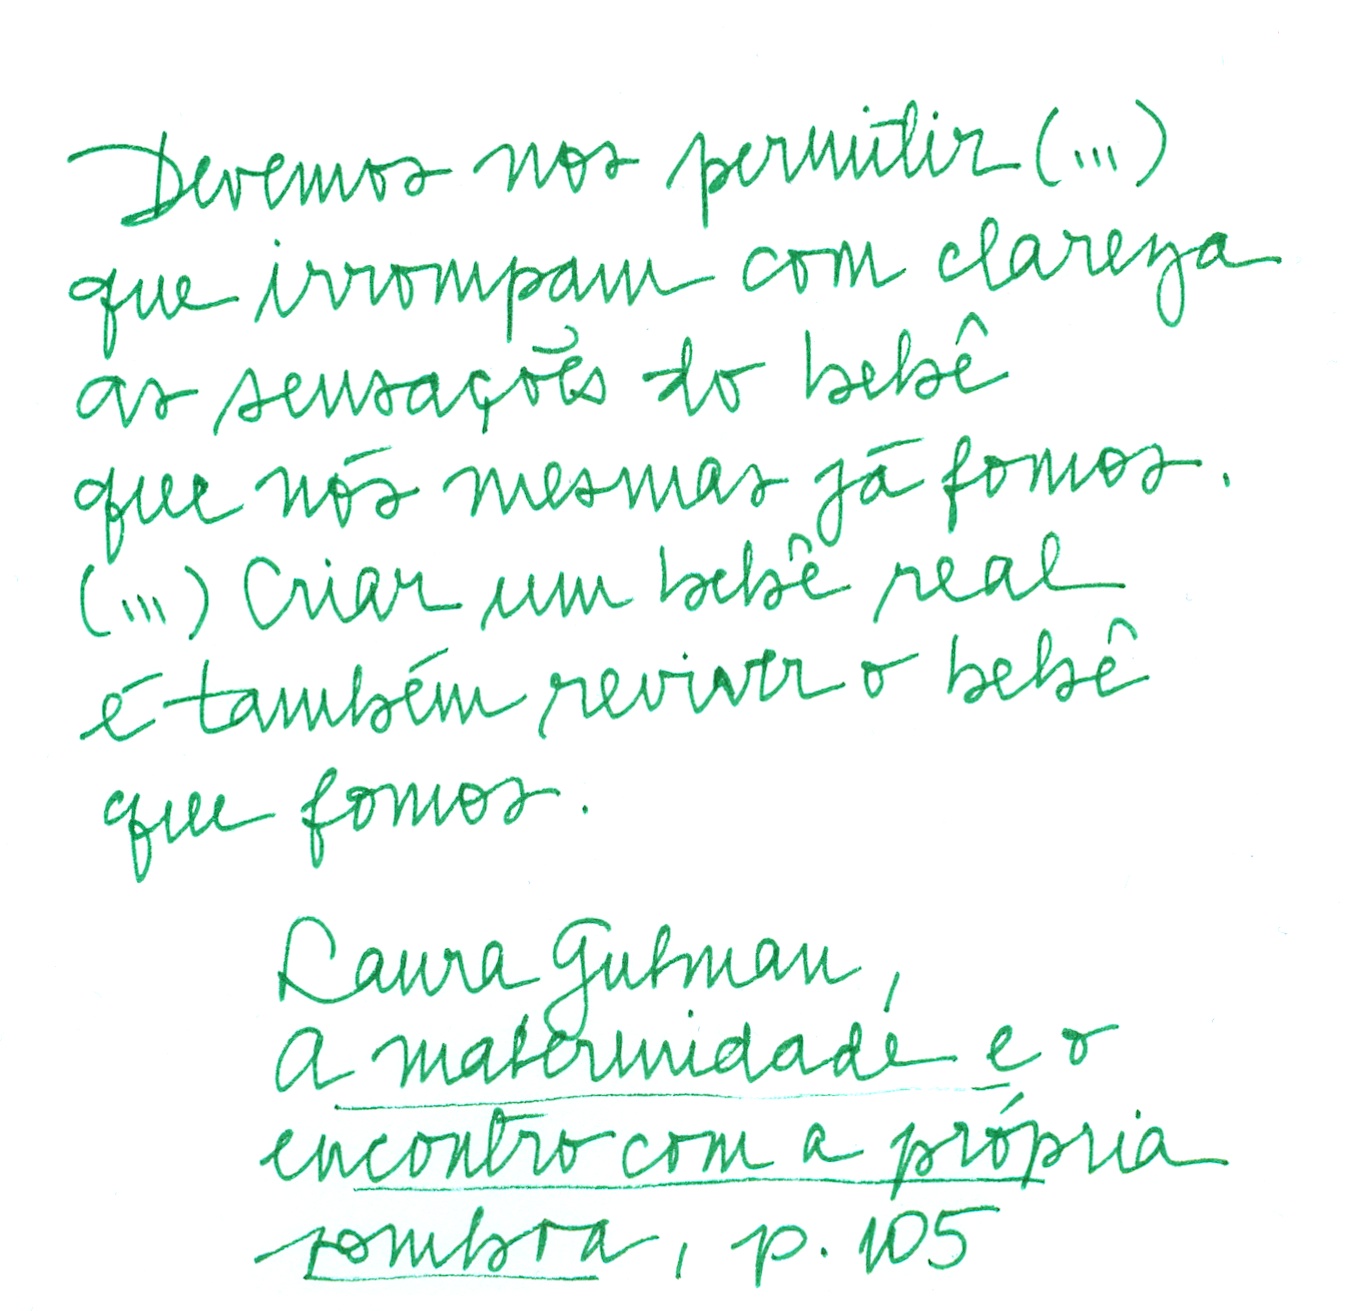 Devemos nos permitir (...)
que irrompam com clareza
as sensações do bebê
que nós mesmas já fomos.
(...) Criar um bebê real
é também reviver o bebê
que fomos.
Laura Gutman,
A maternidade e o
encontro com a própria
sombra, p. 105